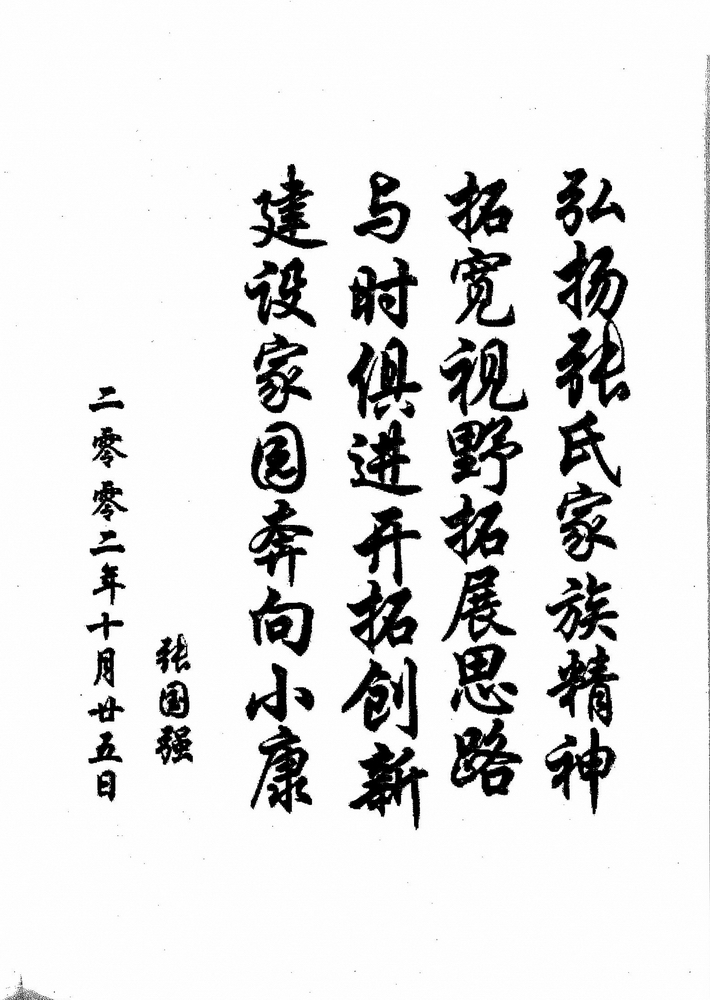 弘扬张氏家族精神
拓宽视野拓展思路
与时俱进开拓创新
建设家园奔向小康
张国强
二零零二年十月廿五日